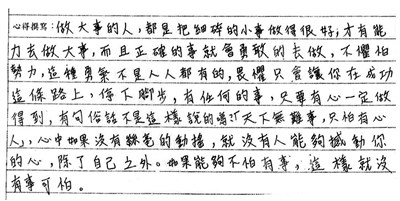 心得撰寫:做大事的人,都是把細碎的小事做得很好,才有能
力去做大事,而且正確的事就會勇敢的去做,不懼怕
努力,這種勇氣不是人人都有的,畏懼只會讓你在成功
這條路上,停下腳步,有任何的事,只要有心一定做
得到,有句俗話不是這樣說的嗎?「天下無難事,只怕有心
人」,心中如果沒有絲毫的動搖,就沒有人能夠撼動你
的心,除了自己之外。如果能夠不怕有事,這樣就沒
有事可怕。